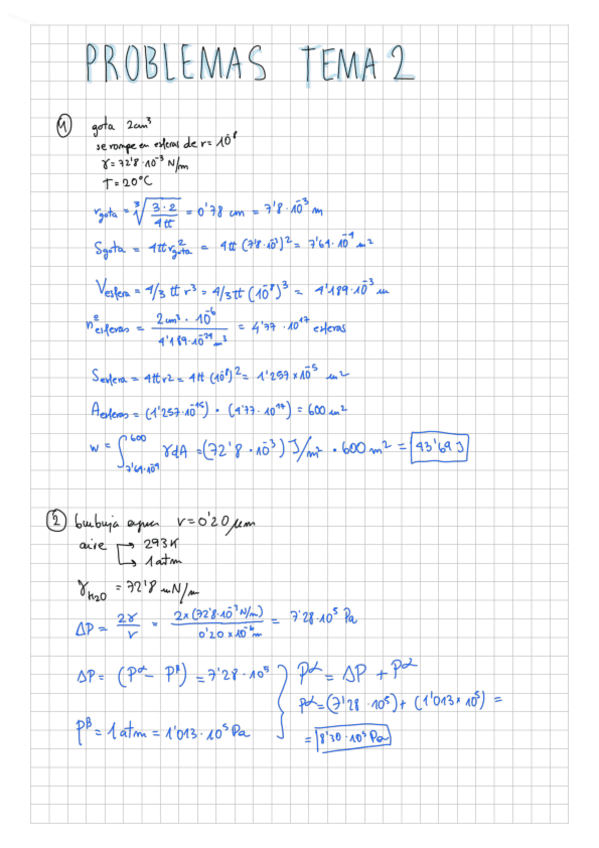 PROBLEMAS TEMA 2
① gota 2cm³
se rompe en esferas de r = 10⁻⁸
γ = 72'8 · 10⁻³ N/m
T = 20°C
r_gota = ∛(3·2 / 4π) = 0'78 cm = 7'8 · 10⁻³ m
S_gota = 4πr²_gota = 4π (7'8 · 10⁻³)² = 7'64 · 10⁻⁴ m²
V_esfera = 4/3 π r³ = 4/3 π (10⁻⁸)³ = 4'189 · 10⁻³ m
nº_esferas = 2cm³ · 10⁻⁶ / 4'189 · 10⁻²⁴ m³ = 4'77 · 10¹⁷ esferas
S_esfera = 4πr2 = 4π (10⁻⁸)² = 1'257 × 10⁻⁵ m²
A_esferas = (1'257 · 10⁻¹⁵) · (4'77 · 10¹⁷) = 600 m²
w = ∫_{7'64·10⁻⁴}^{600} γdA = (72'8 · 10⁻³) J/m² · 600 m² = 43'69 J
② burbuja agua r = 0'20 μm
aire → 293K
→ 1 atm
γ_H2O = 72'8 mN/m
ΔP = 2γ / r = 2 × (72'8 · 10⁻³ N/m) / 0'20 × 10⁻⁶ m = 7'28 · 10⁵ Pa
ΔP = (P^α - P^β) = 7'28 · 10⁵ } P^α = ΔP + P^α
P^α = (7'28 · 10⁵) + (1'013 × 10⁵) =
P^β = 1 atm = 1'013 · 10⁵ Pa
= 8'30 · 10⁵ Pa